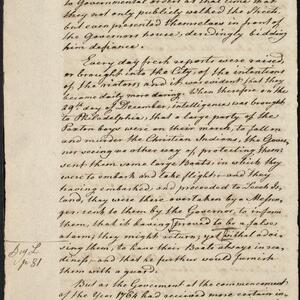 to Governmental orders at that time that
they not only publicly walked the Streets,
but even presented themselves in front of
the Governors house, deridingly bidding
him defiance.
Every day fresh reports were raised,
or brought into the City, of the intentions
of the rioters; and it was evident that they
became daily more daring. When therefore on the
29th day of December, intelligence was brought
to Philadelphia, that a large party of the
Paxton boys were on their march, to fall on
and murder the Christian Indians, the Gover-
nor seeing no other way of protecting them
sent them some large Boats, in which they
were to embark and take flight; and they
having embarked and proceeded to Leech Is-
land, they were overtaken by a Messen-
ger sent to them by the Governor, to inform
them, that it having proved to be a false
alarm, they might return, yet with a advi-
sing them, to have their Boats always in rea-
diness, and that he further would furnish
them with a guard.
But as the Government at the commencement
of the Year 1764 had received more certain in-
p. 81